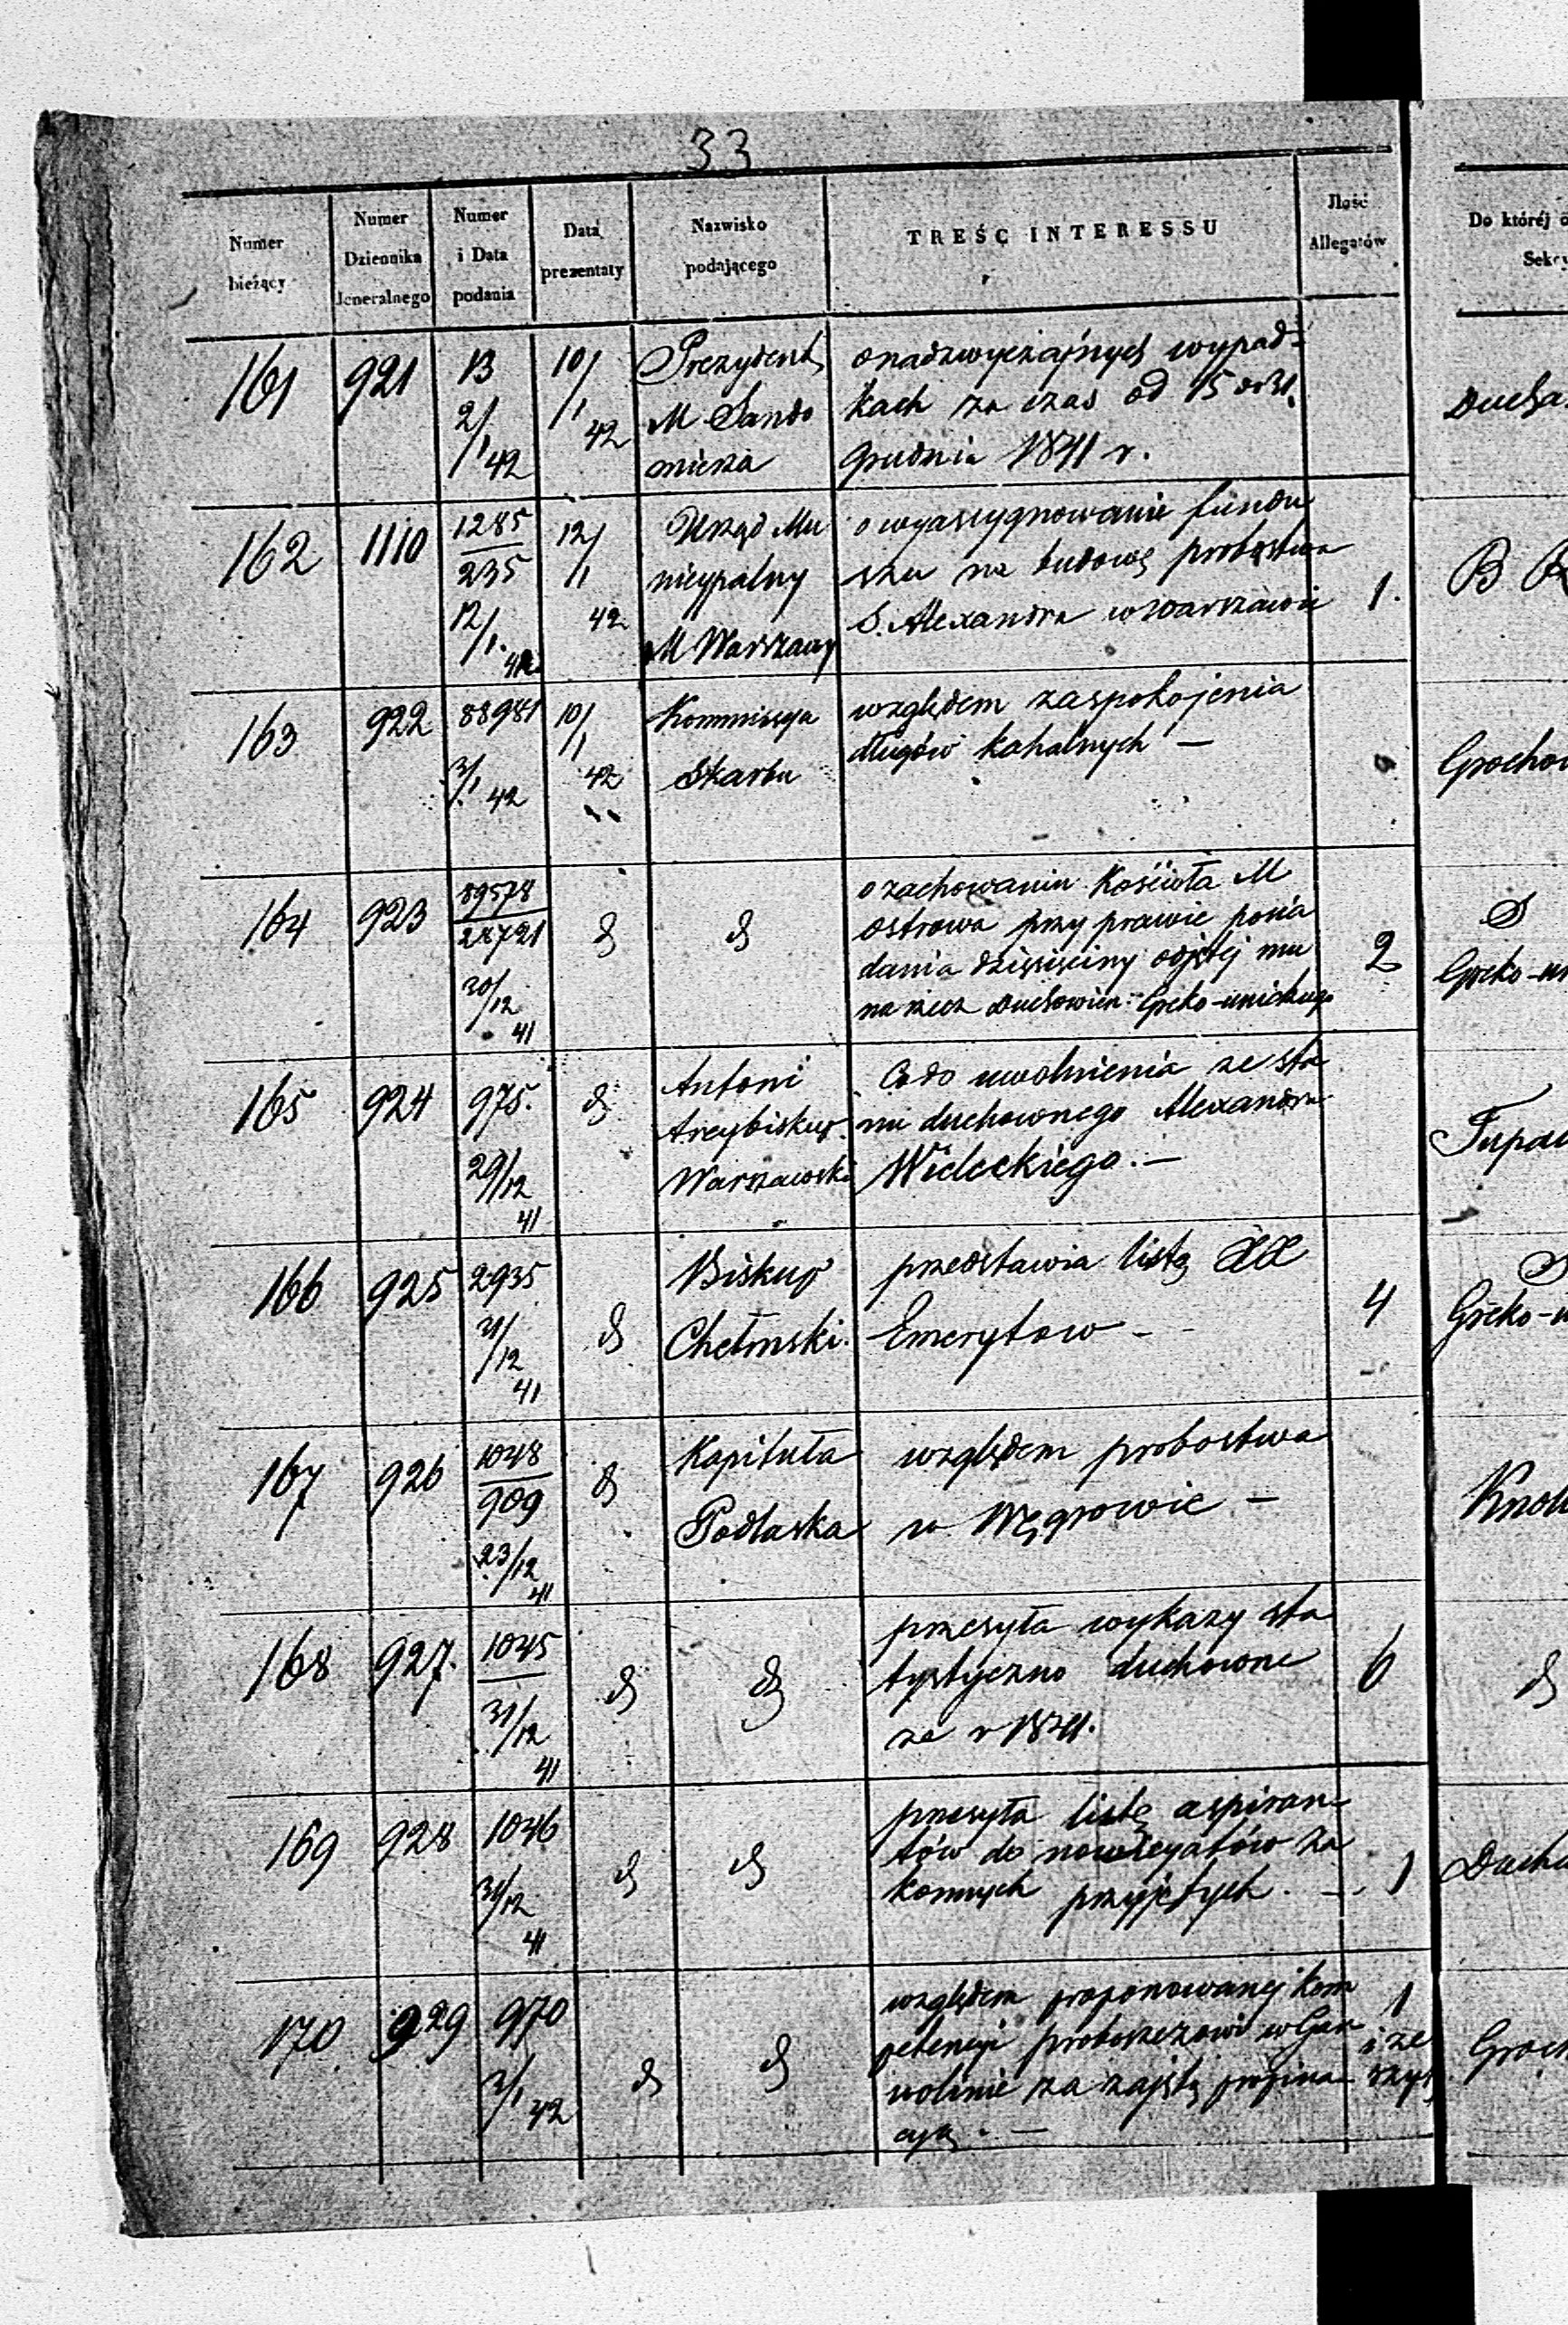 33
Numer bieżący
Numer Dziennika Jeneralnego
Numer i Data podania
Data prezentaty
Nazwisko podającego
TREŚĆ INTERESSU
Ilość Allegatów
Do której
161
921
13
2/1 42
10/1 42
Prezydent
M Sando
mierza
o nadzwyczajnych wypad-
kach za czas od 15 do 31
Grudnia 1841 r.
162
1110
1285
235
12/1. 42
12/1 42
Urząd Mu
nicypalny
M Warszawy
o wyassygnowanie fundu
szu na budowę probostwa
S. Alexandra w Warszawie
1.
B
163
922
88981
3/1 42
10/1 42
Kommissya
Skarbu
względem zaspokojenia
długów kahalnych —
164
923
89578
28721
20/12 41
d
d
o zachowaniu Kościoła M
Ostrowa przy prawie posia
dania dziesięciny odjętej mu
na rzecz Duchowień: Greko-unickiego
2
S
165
924
975.
29/12 41
d
Antoni
Arcybiskup
Warszawski
Co do uwolnienia ze sta
nu duchownego Alexandra
Wideckiego. —
166
925
2935
31/12 41
d
Biskup
Chełmski.
przedstawia listę XX
Emerytow - -
4
167
926
1048
909
23/12 41
d
Kapituła
Podlaska
względem probostwa
w Węgrowie —
168
927.
1045
31/12 41
d
d
przesyła wykazy sta
tystyczno duchowne
za r 1841.
6
d
169
928
1046
31/12 41
d
d
przesyła listę aspiran
tów do nowicyatów za
konnych przyjętych. —
1
170.
929
970
2/1 42
d
d
względem proponowanej kom
petencyi proboszczowi w Gar
wolinie za zajętą propina
cyą. —
1
i ze
szyt